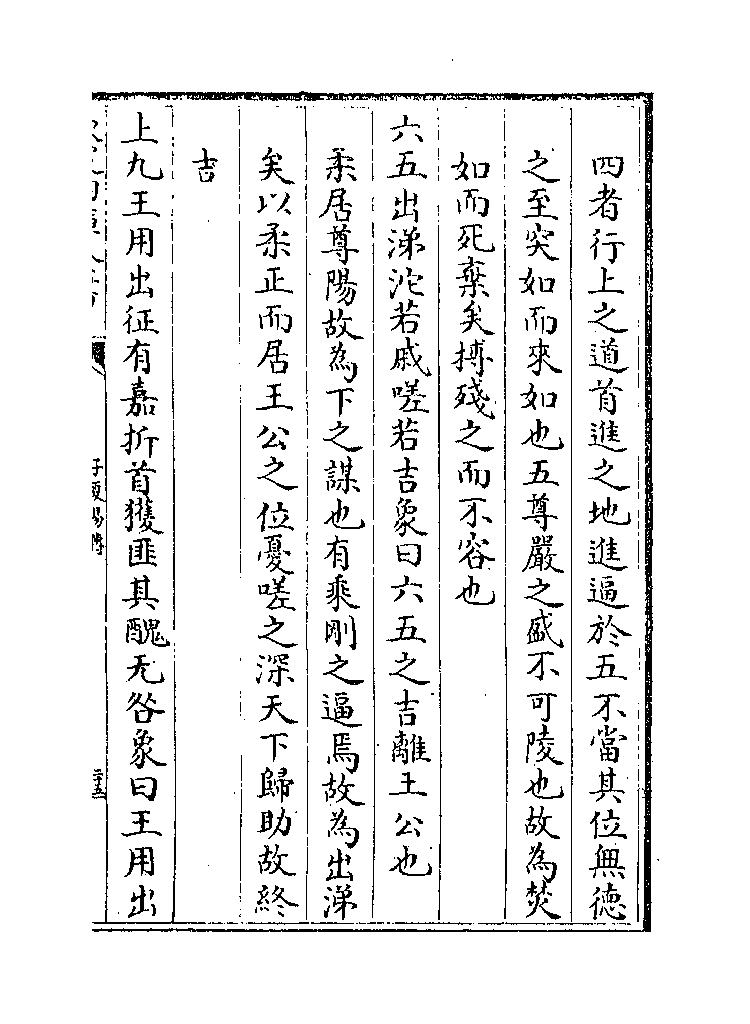 四者行上之道首進之地進逼於五不當其位無徳
之至突如而來如也五尊嚴之盛不可陵也故為焚
如而死棄矣摶殘之而不容也
六五出涕沱若戚嗟若吉象曰六五之吉離王公也
柔居尊陽故為下之謀也有乘剛之逼焉故為出涕
矣以柔正而居王公之位憂嗟之深天下歸助故終
吉
上九王用出征有嘉折首獲匪其醜无咎象曰王用出
子夏易傳